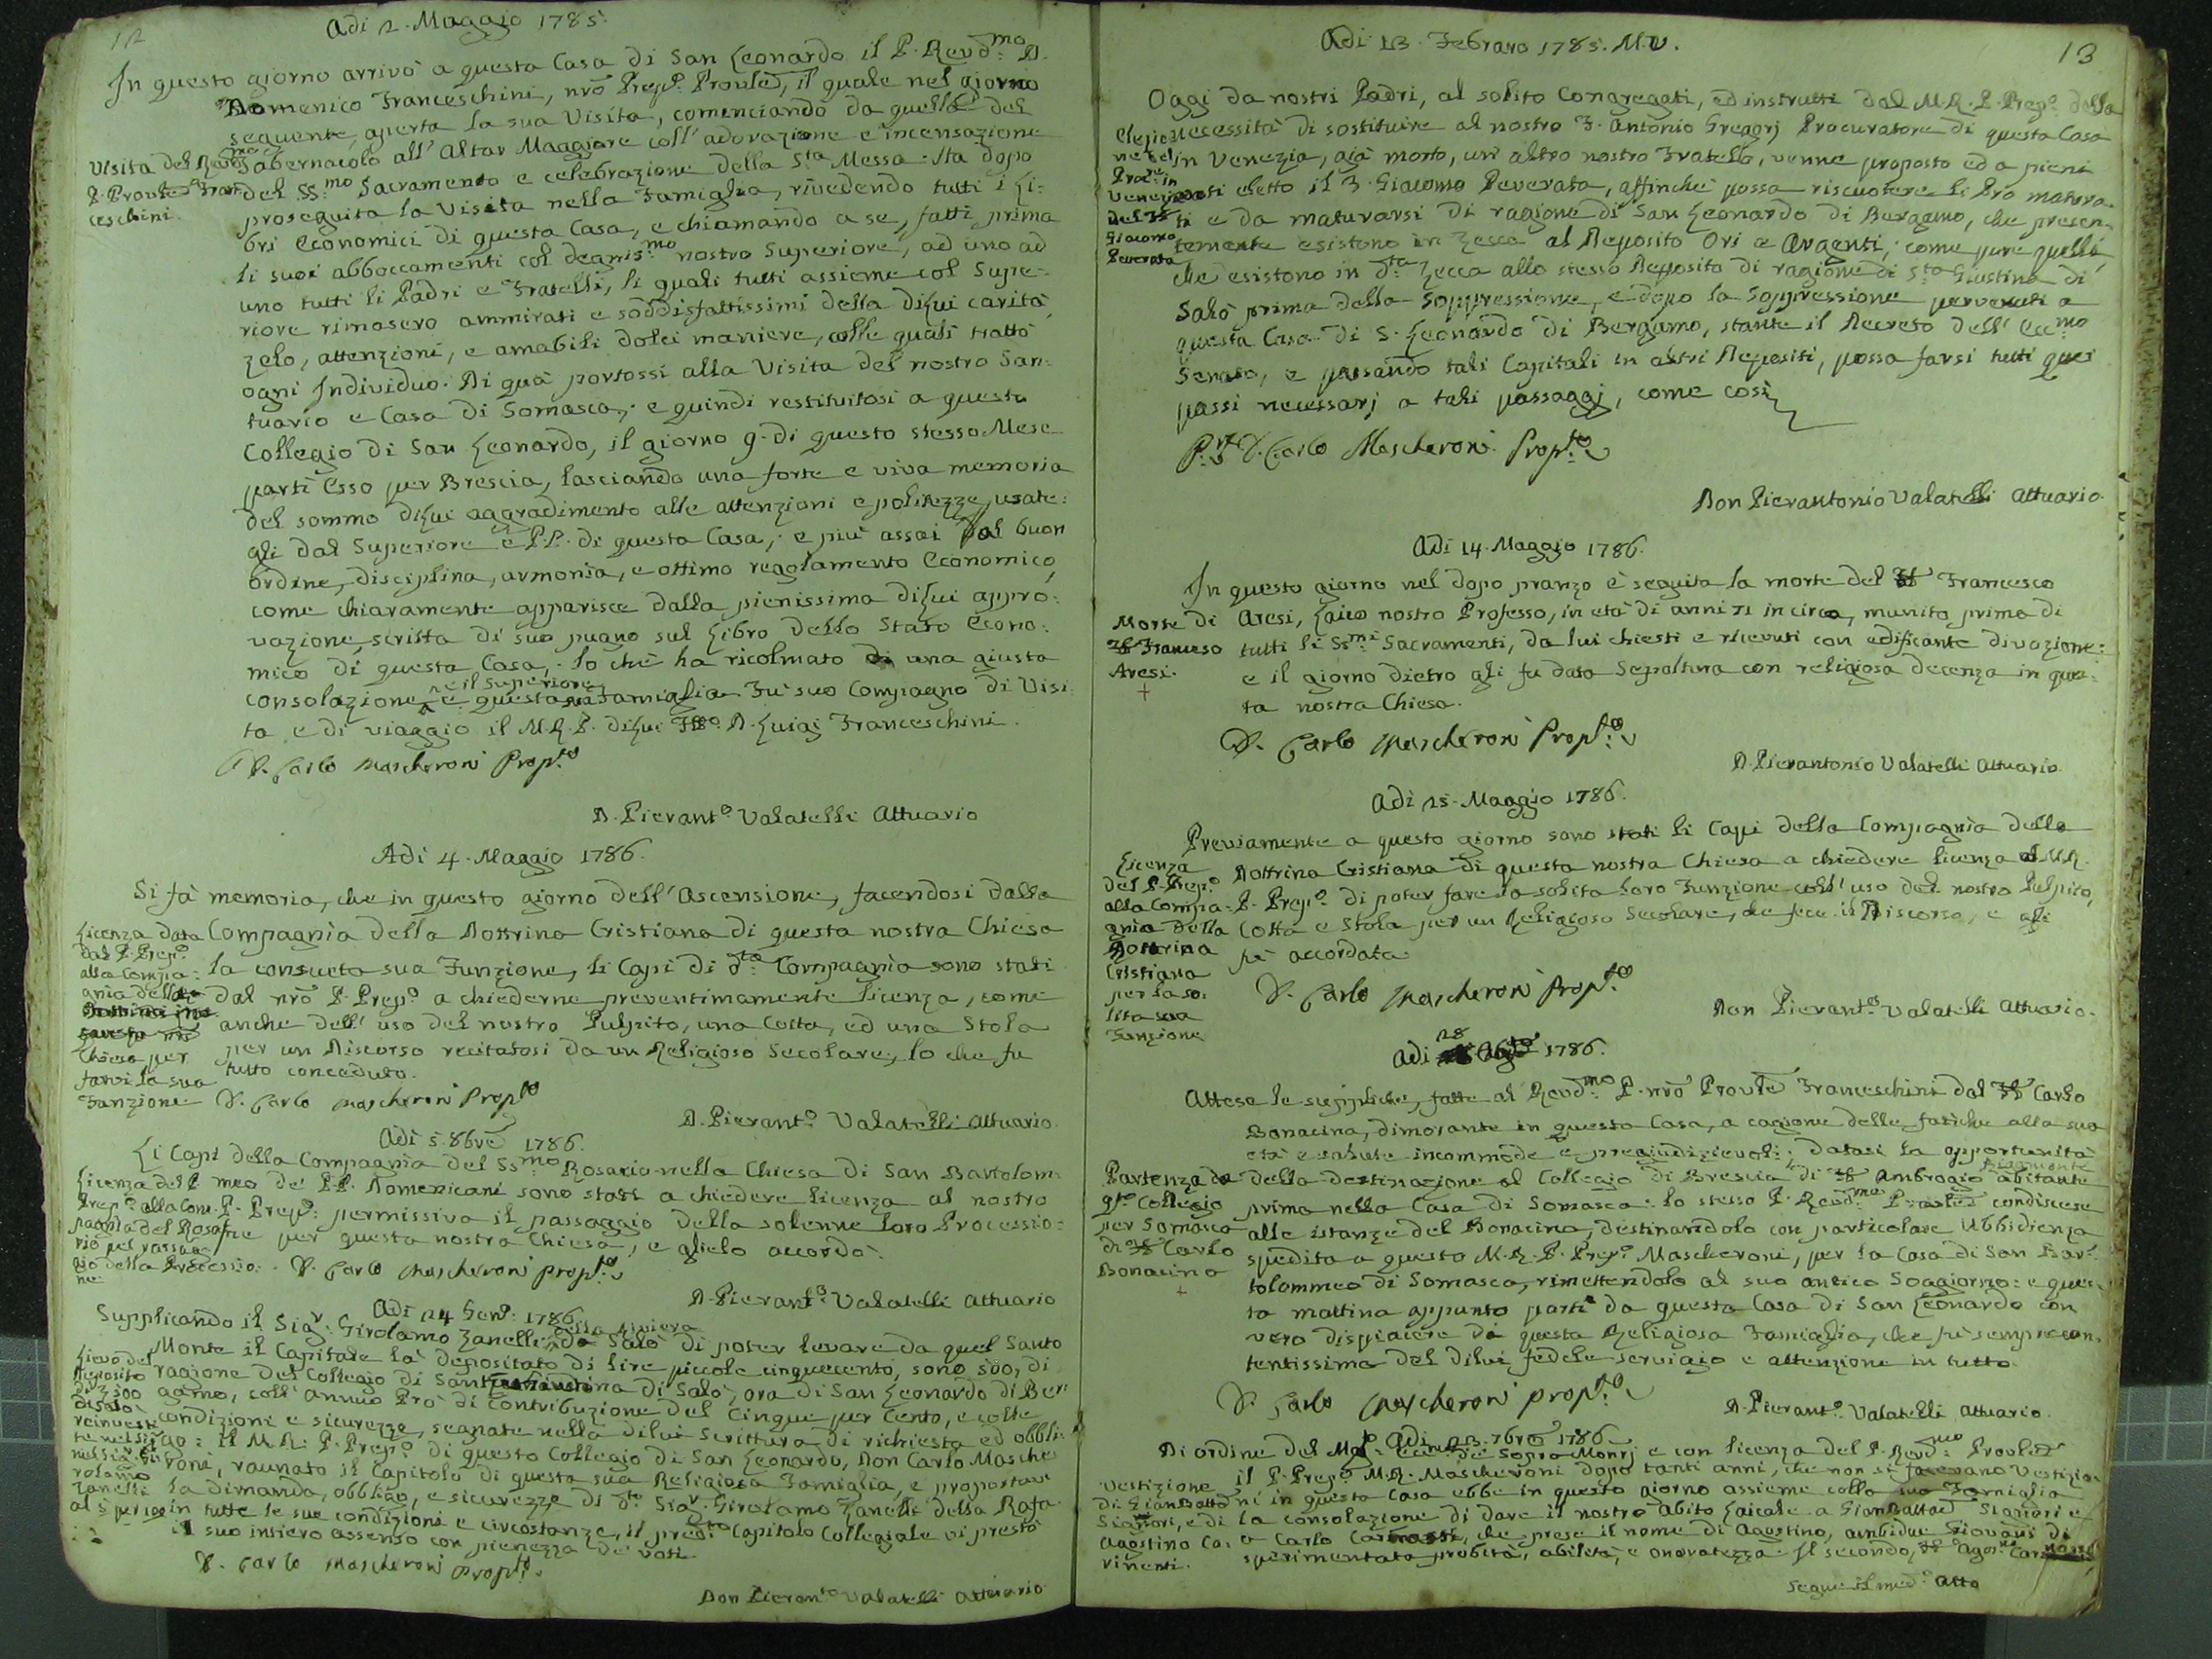 12
Adi 2. Maggio 1785.
In questo giorno arrivò a questa Casa di San Leonardo il P. Revd.mo D.
Domenico Franceschini, nrõ Prep.o Provĺe, il quale nel giorno
seguente, aperta la sua Visita, cominciando da quella del
Tabernacolo all' Altar Maggiore coll' adorazione e incensazione
del SS.mo Sacramento e celebrazione della S.ta Messa. Ita dopo
proseguita la Visita nella Famiglia, rivedendo tutti i Li:
bri Economici di questa Casa, e chiamando a se, fatti prima
li suoi abboccamenti col degnis.mo nostro Superiore, ad uno ad
uno tutti li Padri e Fratelli, li quali tutti assieme col Supe:
riore rimasero ammirati e soddisfattissimi della dilui carità,
zelo, attenzioni, e amabili dolci maniere, colle quali trattò
ogni Individuo. Di quà portossi alla Visita del nostro San:
tuario e Casa di Somasca, e quindi restituitosi a questo
Collegio di San Leonardo, il giorno 9. di questo stesso Mese
partì Esso per Brescia, lasciando una forte e viva memoria
del sommo dilui aggradimento alle attenzioni e politezze usate:
gli dal Superiore e PP. di questa Casa, e più assai dal buon
ordine, disciplina, armonia, e ottimo regolamento Economico,
come chiaramente apparisce dalla pienissima dilui appro:
vazione, scritta di suo pugno sul Libro dello Stato Econo:
mico di questa Casa, lo che ha ricolmato di una giusta
consolazione il Superiore e questa sua Famiglia. Fù suo Compagno di Visi
ta e di viaggio il M.R.P. dilui D. Luigi Franceschini.
Visita del Revd.mo
P. Provĺe Fran
ceschini.
D. Carlo Mascheroni Prop.to
D. Pierant.o Valatelli Attuario
Adi 4. Maggio 1786.
Si fà memoria, che in questo giorno dell' Ascensione, facendosi dalla
Compagnia della Dottrina Cristiana di questa nostra Chiesa
la consueta sua Funzione, li Capi di d.ta Compagnia sono stati
dal nrõ P. Prep.o a chiederne preventivamente licenza, come
anche dell' uso del nostro Pulpito, una Cotta, ed una Stola
per un Discorso recitatosi da un Religioso Secolare, lo che fu
tutto conceduto.
Licenza data
dal P. Prep.o
alla Compa:
gnia della
Chiesa per
farvi la sua
Funzione
D. Carlo Mascheroni Prop.to
D. Pierant.o Valatelli Attuario.
Adi 5. 8brẽ 1786.
Li Capi della Compagnia del SS.mo Rosario nella Chiesa di San Bartolom:
meo de' PP. Domenicani sono stati a chiedere licenza al nostro
P. Prep.o permissiva il passaggio della solenne loro Processio:
ne per questa nostra Chiesa, e glielo accordò.
Licenza del P.
Prep.o alla Com:
pagnia del Rosa:
rio pel passag:
gio della Processio:
ne
D. Carlo Mascheroni Prop.to
D. Pierant.o Valatelli Attuario
Adi 24 Gen.o 1786
Supplicando il Sig.r Girolamo Zanelli della Riviera di Salò di poter levare da quel Santo
Monte il Capitale là depositato di lire piccole cinquecento, sono 500, di
ragione del Collegio di Santa Giustina di Salò, ora di San Leonardo di Ber:
gamo, coll' annuo Prò di Contribuzione del Cinque per Cento, e colle
condizioni e sicurezze, segnate nella dilui Scrittura di richiesta ed obbli:
go: il M.R. P. Prep.o di questo Collegio di San Leonardo, Don Carlo Masche
rone, raunato il Capitolo di questa sua Religiosa Famiglia, e proposta
la dimanda, obbligo, e sicurezze di d.to Sig.r Girolamo Zanelli della Rafa
in tutte le sue condizioni e circostanze, il pred.to Capitolo Collegiale vi prestò
il suo intiero assenso con pienezza de' voti.
Lievo del
deposito
di L 500
di Salò
reinvesti
te nel Sig.r Gi
rolamo
Zanelli
al 5 per 100
D. Carlo Mascheroni Prop.to
Don Pieran.to Valatelli Attuario
13
Adi 13. Febraro 1785. M.V.
Oggi da nostri Padri, al solito Congregati, ed instrutti dal M.R.P. Prep.o della
necessità di sostituire al nostro F. Antonio Gregorj Procuratore di questa Casa
in Venezia, già morto, un altro nostro Fratello, venne proposto ed a pieni
voti eletto il F. Giacomo Peverata, affinchè possa riscuotere li Prò matura
ti e da maturarsi di ragione di San Leonardo di Bergamo, che presen:
temente esistono in Zecca al Deposito Ori e Argenti, come pure quelli,
che esistono in d.ta Zecca allo stesso Deposito di ragione di S.ta Giustina di
Salò prima della Soppressione, e dopo la Soppressione pervenuti a
questa Casa di S. Leonardo di Bergamo, stante il Decreto dell' Ecc.mo
Senato, e passando tali Capitali in altri Depositi, possa farsi tutti quei
passi necessarj a tali passaggi, come così
Elezio
ne del
Proc.re in
Venezia
del F.
Giacomo
Peverata
D. Carlo Mascheroni Prop.to
Don Pierantonio Valatelli Attuario.
Adi 14. Maggio 1786.
In questo giorno nel dopo pranzo è seguita la morte del Francesco
Aresi, Laico nostro Professo, in età di anni 71 in circa, munito prima di
tutti li SS.mi Sacramenti, da lui chiesti e ricevuti con edificante divozione:
e il giorno dietro gli fu data Sepoltura con religiosa decenza in que:
ta nostra Chiesa.
Morte di
Francesco
Aresi.
+
D. Carlo Mascheroni Prop.to
D. Pierantonio Valatelli Attuario.
Adi 25. Maggio 1786.
Previamente a questo giorno sono stati li Capi della Compagnia della
Dottrina Cristiana di questa nostra Chiesa a chiedere licenza al M.R.
P. Prep.o di poter fare la solita loro Funzione coll' uso del nostro Pulpito,
Cotta e Stola per un Religioso Secolare, che fece il Discorso, e gli
fù accordata.
Licenza
del P. Prep.o
alla Compa:
gnia della
Dottrina
Cristiana
per la so:
lita sua
Funzione
D. Carlo Mascheroni Prop.to
Don Pierant.o Valatelli Attuario.
Adi 28 Ag.to 1786.
Attese le suppliche, fatte al Revd.mo P. nrõ Provĺe Franceschini dal Carlo
Bonacina, dimorante in questa Casa, a cagione delle fatiche alla sua
età e salute incommode e pregiudizievoli; datasi la opportunità
della destinazione al Collegio di Brescia di Ambrogio abitante
prima nella Casa di Somasca. lo stesso P. Revd.mo Provĺe condiscese
alle istanze del Bonacina, destinandolo con particolare Ubbidienza
spedita a questo M.R.P. Prep.o Mascheroni, per la Casa di San Bar:
tolommeo di Somasca, rimettendolo al suo antico Soggiorno: e ques:
ta mattina appunto partì da questa Casa di San Leonardo con
vero dispiacere di questa Religiosa Famiglia, che fù sempre con:
tentissima del dilui fedele servigio e attenzione in tutto.
Partenza da
q.to Collegio
per Somasca
di Carlo
Bonacina
+
D. Carlo Mascheroni Prop.to
D. Pierant.o Valatelli Attuario.
Adi 23. 7brẽ 1786.
Di ordine del Mag.to Ecc.mo de' Sopra Monrj e con licenza del P. Revd.mo Provĺe
il P. Prep.o M.R. Mascheroni dopo tanti anni, che non si facevano Vestizio:
ni in questa Casa ebbe in questo giorno assieme colla sua Famiglia
la consolazione di dare il nostro abito Laicale a GianBatta Signori e
a Carlo, che prese il nome di Agostino, ambidue Giovani di
sperimentata probità, abilità, e onoratezza. Il secondo, Agos.no
Vestizione
di GianBatta
Signori, e di
Agostino Ca:
vinenti.
Segue il med.o Atto